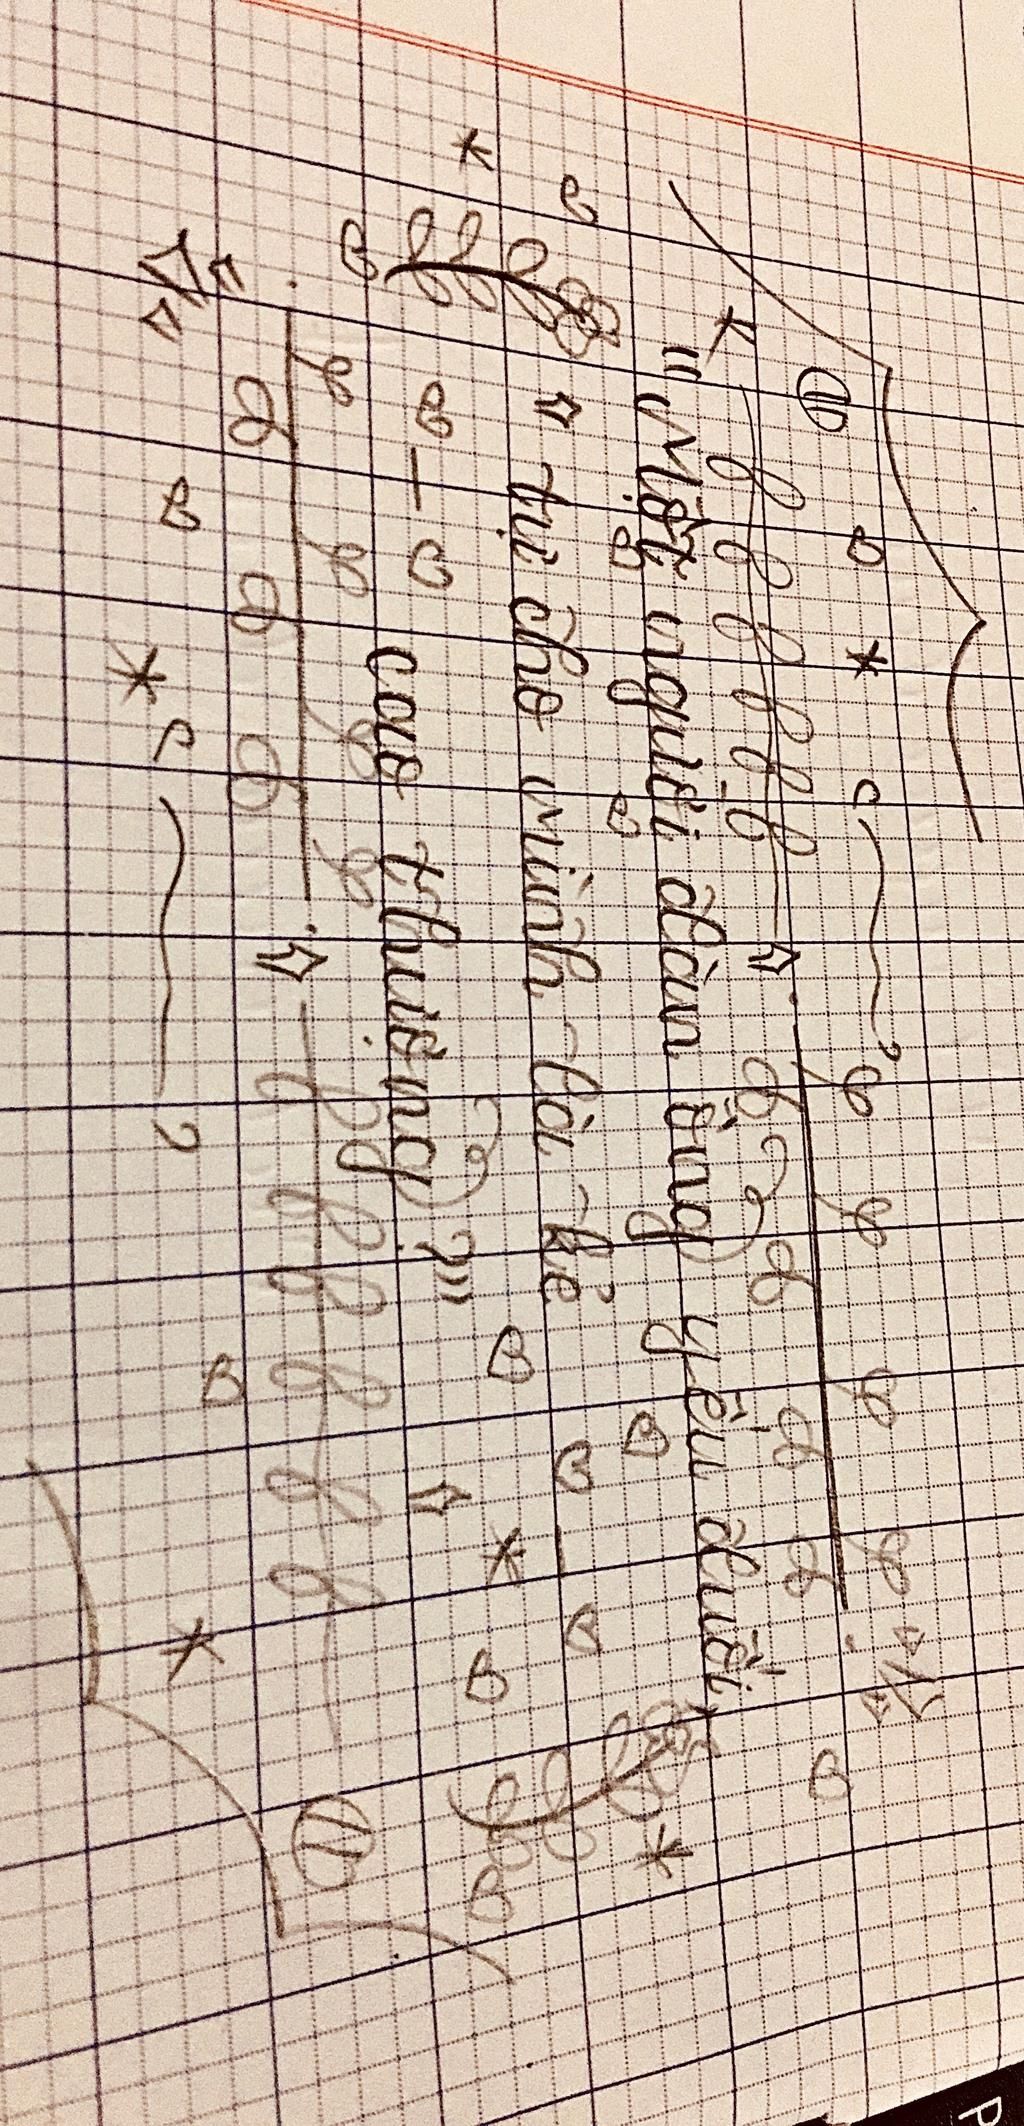 "Một người đàn ông yếu đuối,
tự cho mình là kẻ
cao thượng?"
P